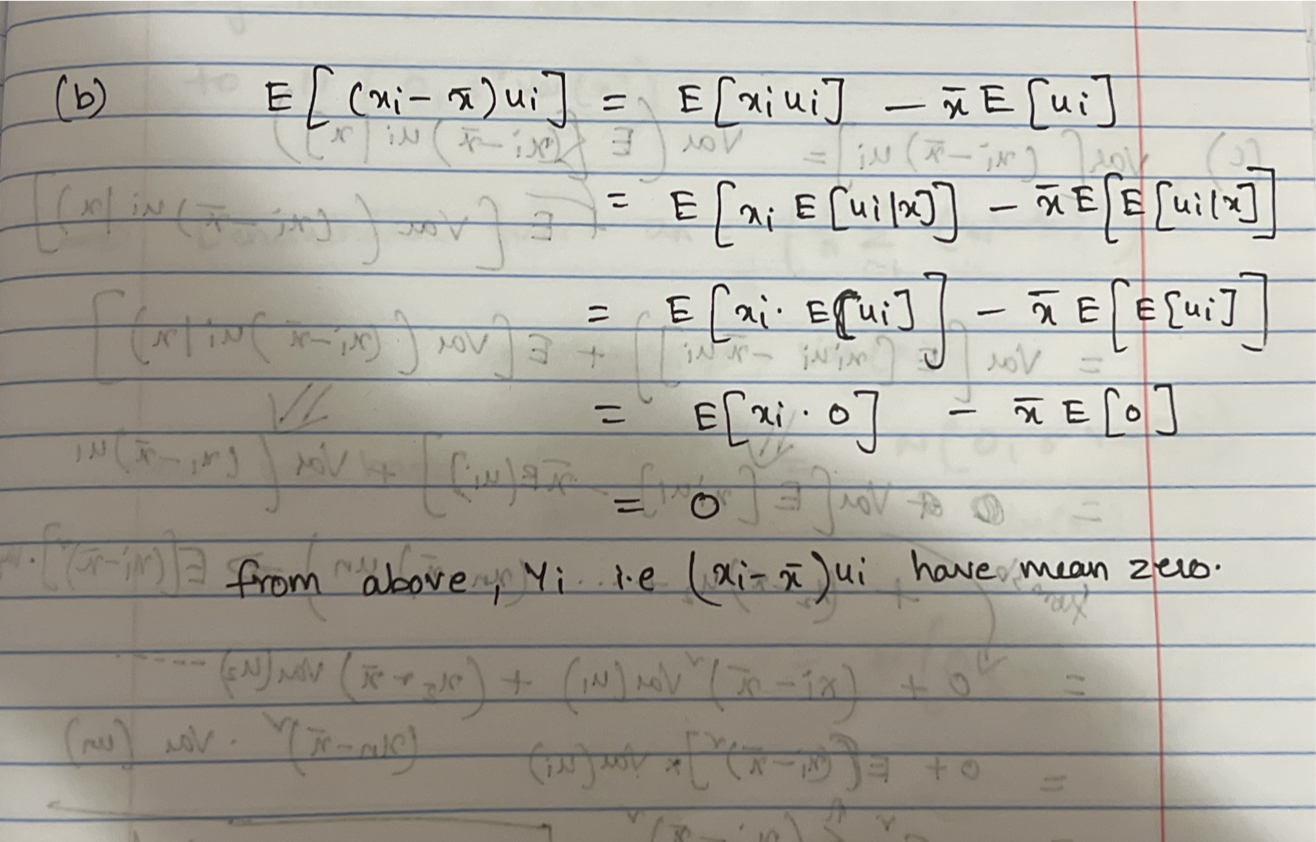 (b) E[(xi - x̄)ui] = E[xiui] - x̄E[ui]
= E[xi E[ui|x]] - x̄E[E[ui|x]]
= E[xi · E[ui]] - x̄ E[E[ui]]
= E[xi · 0] - x̄ E[0]
= 0
from above, Yi i.e (xi - x̄)ui have mean zero.